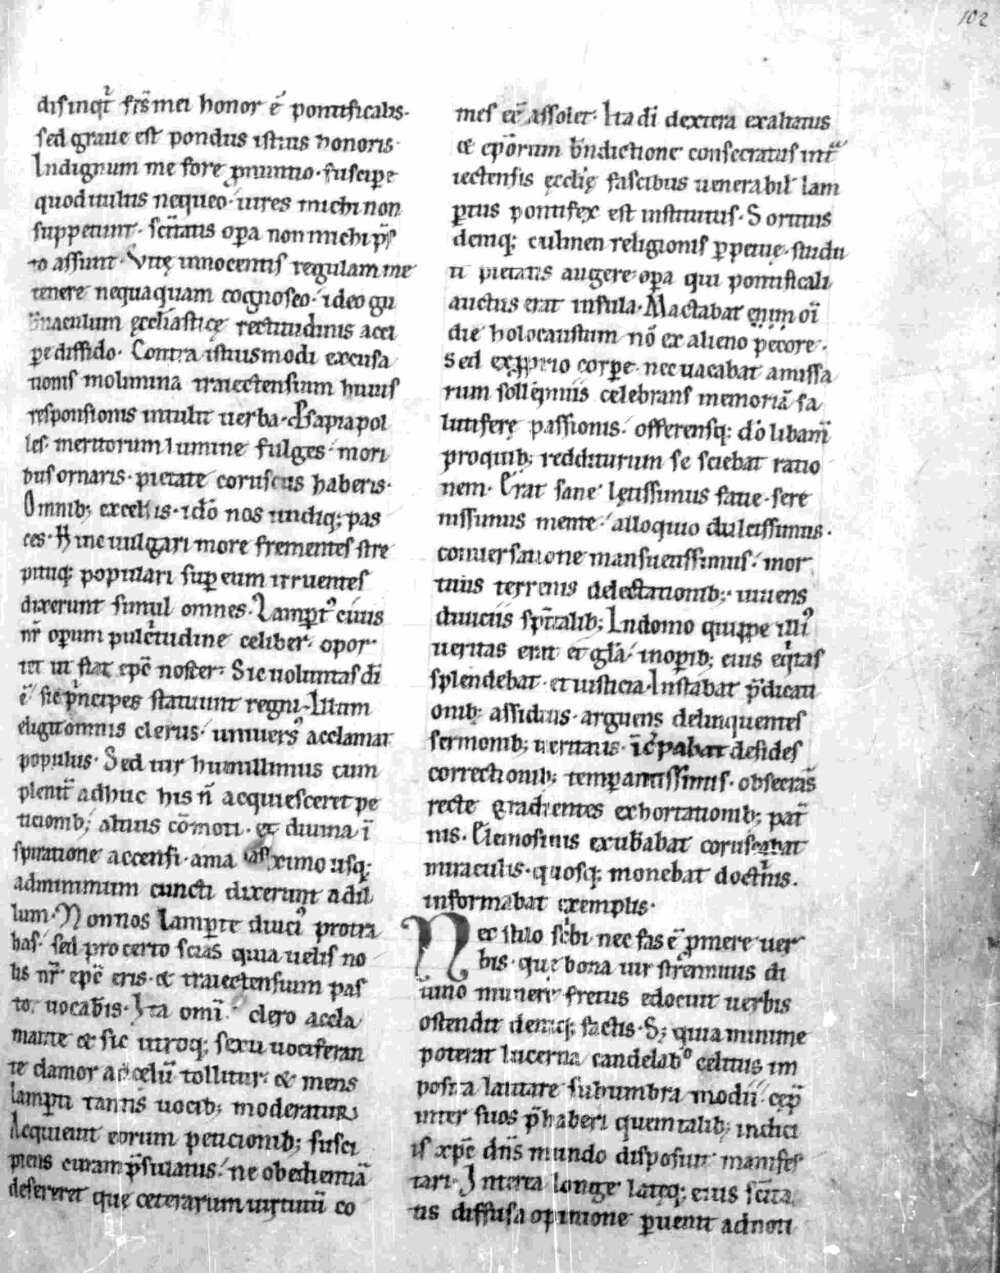 102
disinqt᷒ fr̄s mei honor ē pontificalis.
sed graue est pondus istius honoris.
Indignum me fore ꝓnuntio. suscipe
quod intus nequeo. uires michi non
suppetunt. sc̄itatis oꝑa non michi p̄s
to assunt. Vitę innocentis regulam me
tenere nequaquam cognosco. ideo gu
bnaculum ęcclīasticę rectitudinis acci
ꝑe diffido. Contra istiusmodi excusa
tionis molimina traiectensium huius
responsionis intulit uerba. Psapia pol
les. meritorum lumine fulges. mori
bus ornaris. pietate coruscus haberis.
Omnib; excellis. idō nos undiq; pas
ces. Hinc uulgari more frementes stre
pituq; populari suꝑ eum irruentes
dixerunt simul omnes. Lamptꝰ ciuis
nr̄ oꝑum pulc̄tudine celiber. opor
tet ut fiat ep̄c noster. Sic uoluntas dī
ē. sic p̄ncipes statuunt regni. Illum
eligit omnis clerus. uniuersꝰ acclamat
populus. Sed uir humillimus cum
plenit᷒ adhuc his n̄ acquiesceret pe
ticionib; ciuiūs cōmoti. et diuina ī
spiratione accensi. a maximo usq;
ad minimum cuncti dixerunt ad il
lum. Nonnos Lamꝑte diuciꝰ protra
has. sed pro certo scias quia uelis no
lis nr̄ ep̄c eris. et traiectensium pas
tor uocab̄is. Ita omi clero accla
mante et sic utroq; sexu uociferan
te clamor ad celū tollitur. et mens
lamꝑti tantis uocib; moderatur.
Acquieuit eorum peticionib; susci
piens curam p̄sulatus. ne obedientiā
desereret que ceterarum uirtutū co
mes eē assolet. Ita dī dextera exaltatus
et ep̄orum bn̄dictione consecratus intᷓ
iectensis ęcclię fascibus uenerabil̄ lam
ꝑtus pontifex est institutus. Sortitus
deniq; culmen religionis ꝑpetuę. studu
it pietatis augere oꝑa qui pontificali
auctus erat infula. Mactabat enim oī
die holocaustum nō ex alieno pecore.
Sed ex ꝓprio corꝑe. nec uacabat a missa
rum sollēpniis celebrans memoriā sa
lutiferę passionis. offerensq; dō libam̄
pro quib; redditurum se sciebat ratio
nem. Erat sane lętissimus facie. sere
nissimus mente. alloquio dulcissimus.
conuersatione mansuetissimus. mor
tuus terrenis delectationib; uiuens
diuiciis spīalib; In domo quippe illiꝰ
ueritas erat et gl̄a. in oꝑib; eius eq̄tas
splendebat. et iusticia. Instabat p̄dicati
onib; assiduis. arguens delinquentes
sermonib; ueritatis. īc̄pabat desides
correctionib; temꝑantissimis. obsecrās
recte gradientes exhortationib; pat̄
nis. Elemosinis exub̄abat coruscabat
miraculis. quosq; monebat doct̄nis.
informabat exemplis.
Nec stilo sc̄bi nec fas ē p̄mere uer
bis. que bona uir strēnnuus di
uino munere fretus edocuit uerbis
ostendit deniq; factis. S; quia minime
poterat lucerna candelab̊ celitus im
posita latitare sub umbra modii. cęp̄
inter suos p̄haberi quem talib; indici
is xp̄c dn̄s mundo disposuit manifes
tari. Interea longe lateq; eius sc̄ita
tis diffusa opinione ꝑuenit ad noti